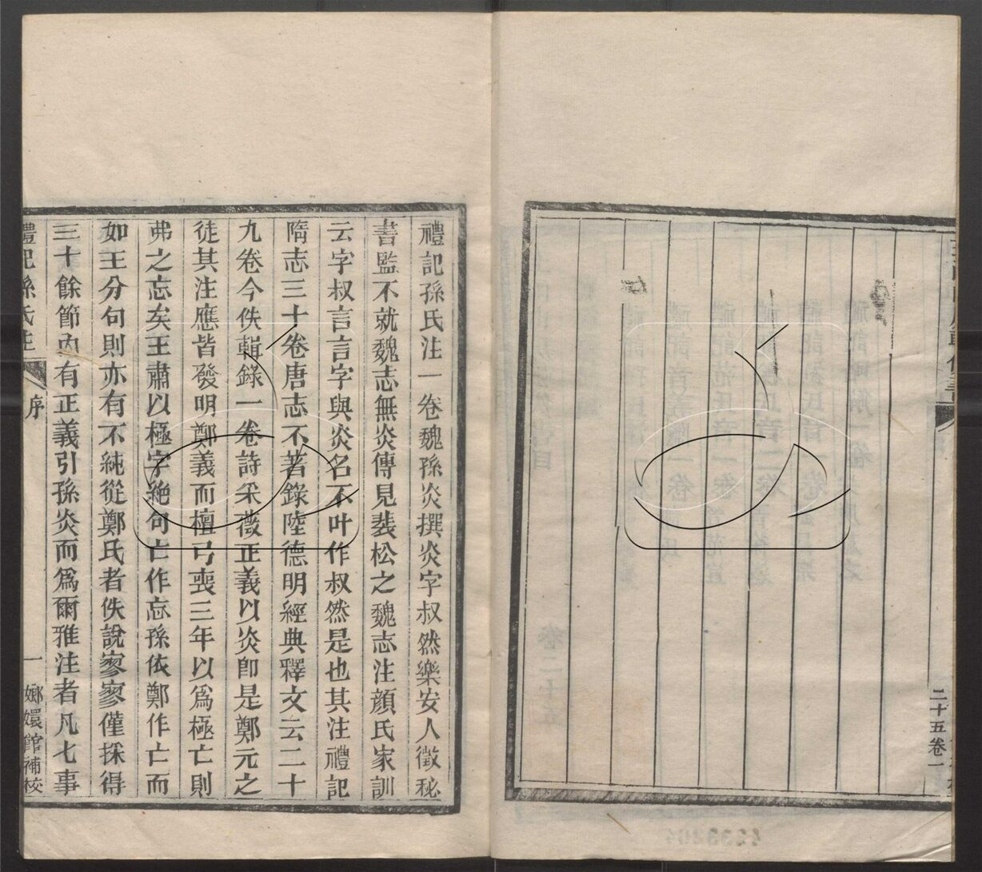 二十五卷一
禮記孫氏注一卷魏孫炎撰炎字叔然樂安人徵秘
書監不就魏志無炎傳見裴松之魏志注顔氏家訓
云字叔言言字與炎名不叶作叔然是也其注禮記
隋志三十卷唐志不著錄陸德明經典釋文云二十
九卷今佚輯錄一卷詩采薇正義以炎卽是鄭元之
徒其注應皆發明鄭義而檀弓喪三年以爲極亡則
弗之忘矣王肅以極字絶句亡作忘孫依鄭作亡而
如王分句則亦有不純從鄭氏者佚說寥寥僅採得
三十餘節內有正義引孫炎而爲爾雅注者凡七事
禮記孫氏注
序
一
嫏嬛館補校